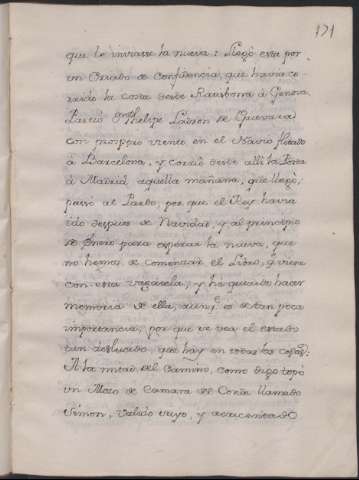 171
que le inviasse la nueva: Llegò esta por
un Criado de confidencia, que havia co-
rrido la costa desde Ratisbona à Genova
Partiò Don Phelipe Ladron de Guevara
con prospero viento en el Navio fletado
à Barcelona, y corriò desde alli la Posta
à Madrid, aquella mañana, que llegò;
passò al Pardo, por que el Rey havia
ido despues de Navidad, y al principio
de Enero para esperar la nueva, que
no hemos de comenzar el Libro, si viene
con esta vagatela, y he querido hacer
memoria de ella, aunq.e es de tan poca
importancia, por que se vea el estado
tan deslucido, que hay en todas las cosas:
A la mitad del Camino, como digo topò
un Mozo de Camara del Conde llamado
Simon, Valido suyo, y acrecentado